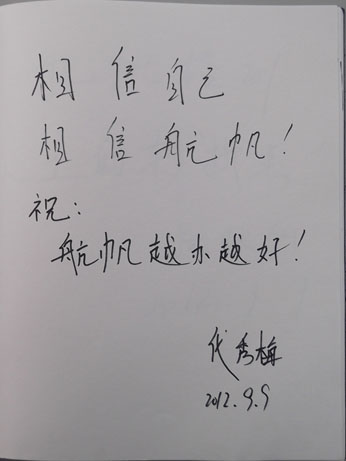 相信自己
相信航帆！
祝：
航帆越办越好！
代秀梅
2012.9.9